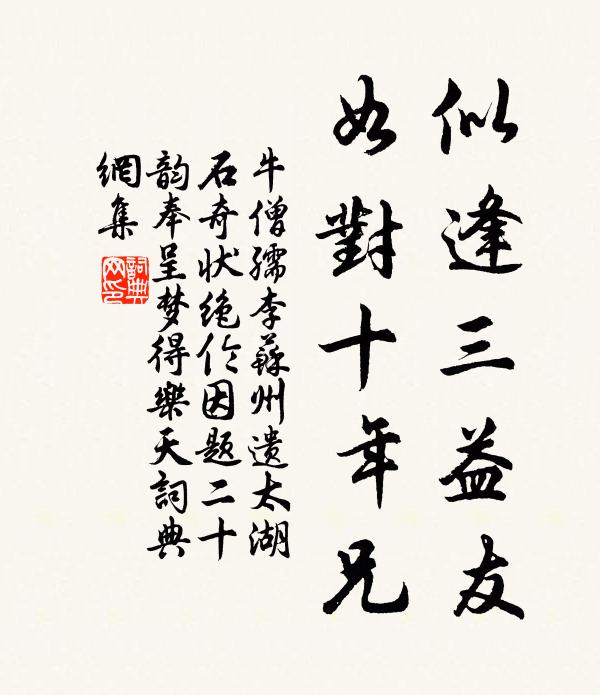 似逢三益友
如對十年兄
牛僧孺李蘇州遺太湖
石奇状绝伦因题二十
韵奉呈梦得樂天詞典
網集
詞典
网印